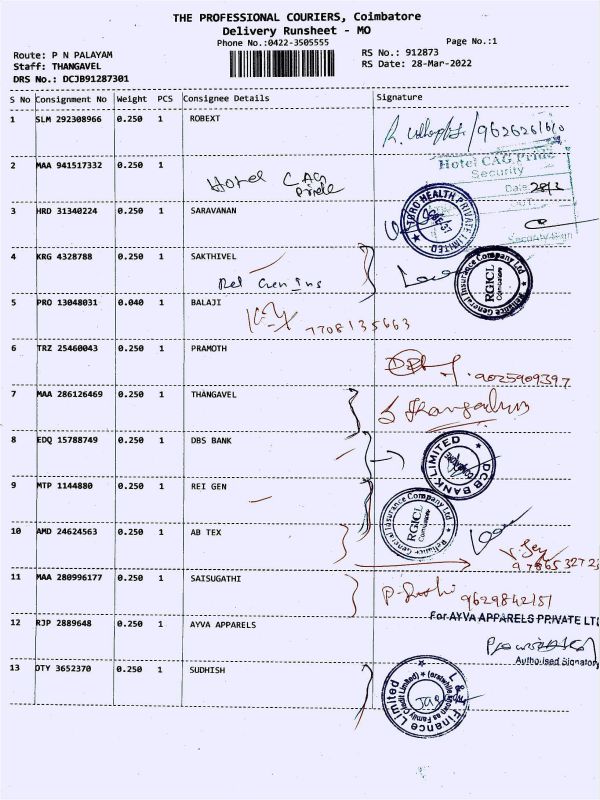 THE PROFESSIONAL COURIERS, Coimbatore
Delivery Runsheet - MO
Phone No.:0422-3505555
Page No.:1
Route: P N PALAYAM
RS No.: 912873
Staff: THANGAVEL
RS Date: 28-Mar-2022
DRS No.: DCJB91287301
S No Consignment No Weight PCS Consignee Details Signature
1 SLM 292308966 0.250 1 ROBEXT
9626261610
2 MAA 941517332 0.250 1
Hotel CAG Pride
Hotel CAG Pride
Security
Date
3 HRD 31340224 0.250 1 SARAVANAN
HEALTH PRIVATE LIMITED
4 KRG 4328788 0.250 1 SAKTHIVEL
Rel Gen Ins
Reliance General Insurance Company Ltd
RGICL
5 PRO 13048031 0.040 1 BALAJI
7708135663
6 TRZ 25460043 0.250 1 PRAMOTH
9025909397
7 MAA 286126469 0.250 1 THANGAVEL
8 EDQ 15788749 0.250 1 DBS BANK
DCB BANK LIMITED
9 MTP 1144880 0.250 1 REI GEN
Reliance General Insurance Company Ltd
RGICL
Coimbatore
10 AMD 24624563 0.250 1 AB TEX
11 MAA 280996177 0.250 1 SAISUGATHI
9629842151
12 RJP 2889648 0.250 1 AYVA APPARELS
For AYVA APPARELS PRIVATE LT
Authorised Signatory
13 DTY 3652370 0.250 1 SUDHISH
L & T Finance Limited
(erstwhile known as Family Credit Limited)